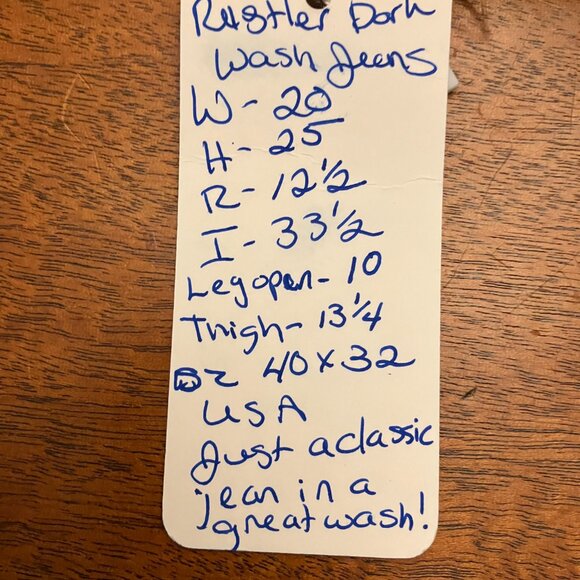 Rustler Dark
Wash Jeans
W - 20
H - 25
R - 12 1/2
I - 33 1/2
Leg open - 10
Thigh - 13 1/4
40 x 32
USA
Just a classic
jean in a
great wash!